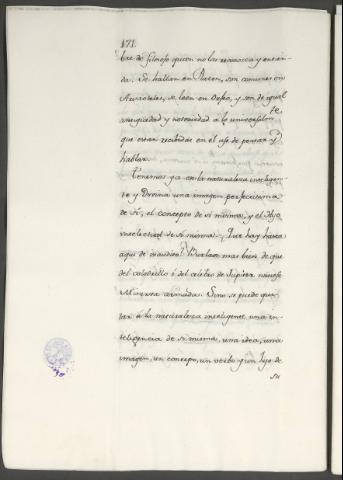 171.
bre de filosofo quien no las reconozca y entien-
da. Se hallan en Platon, son comunes en
Aristoteles, se leen en Orfeo, y son de igual
antiguedad y notoriedad a lo universalmte
que estan recibidas en el uso de pensar y
hablar.
Tenemos ya en la naturaleza inteligen-
te y Divina una imagen perfectisima
de sí, el concepto de si misma, y el Hijo
intelectual de si misma. Que hay hasta
aqui de
que
del celebro de Jupiter
Minerva armada. Sino se puede qui-
tar á la naturaleza inteligente una in-
teligencia de si misma, una idea, una
imagen, un concepto, un verbo y un hijo de
su